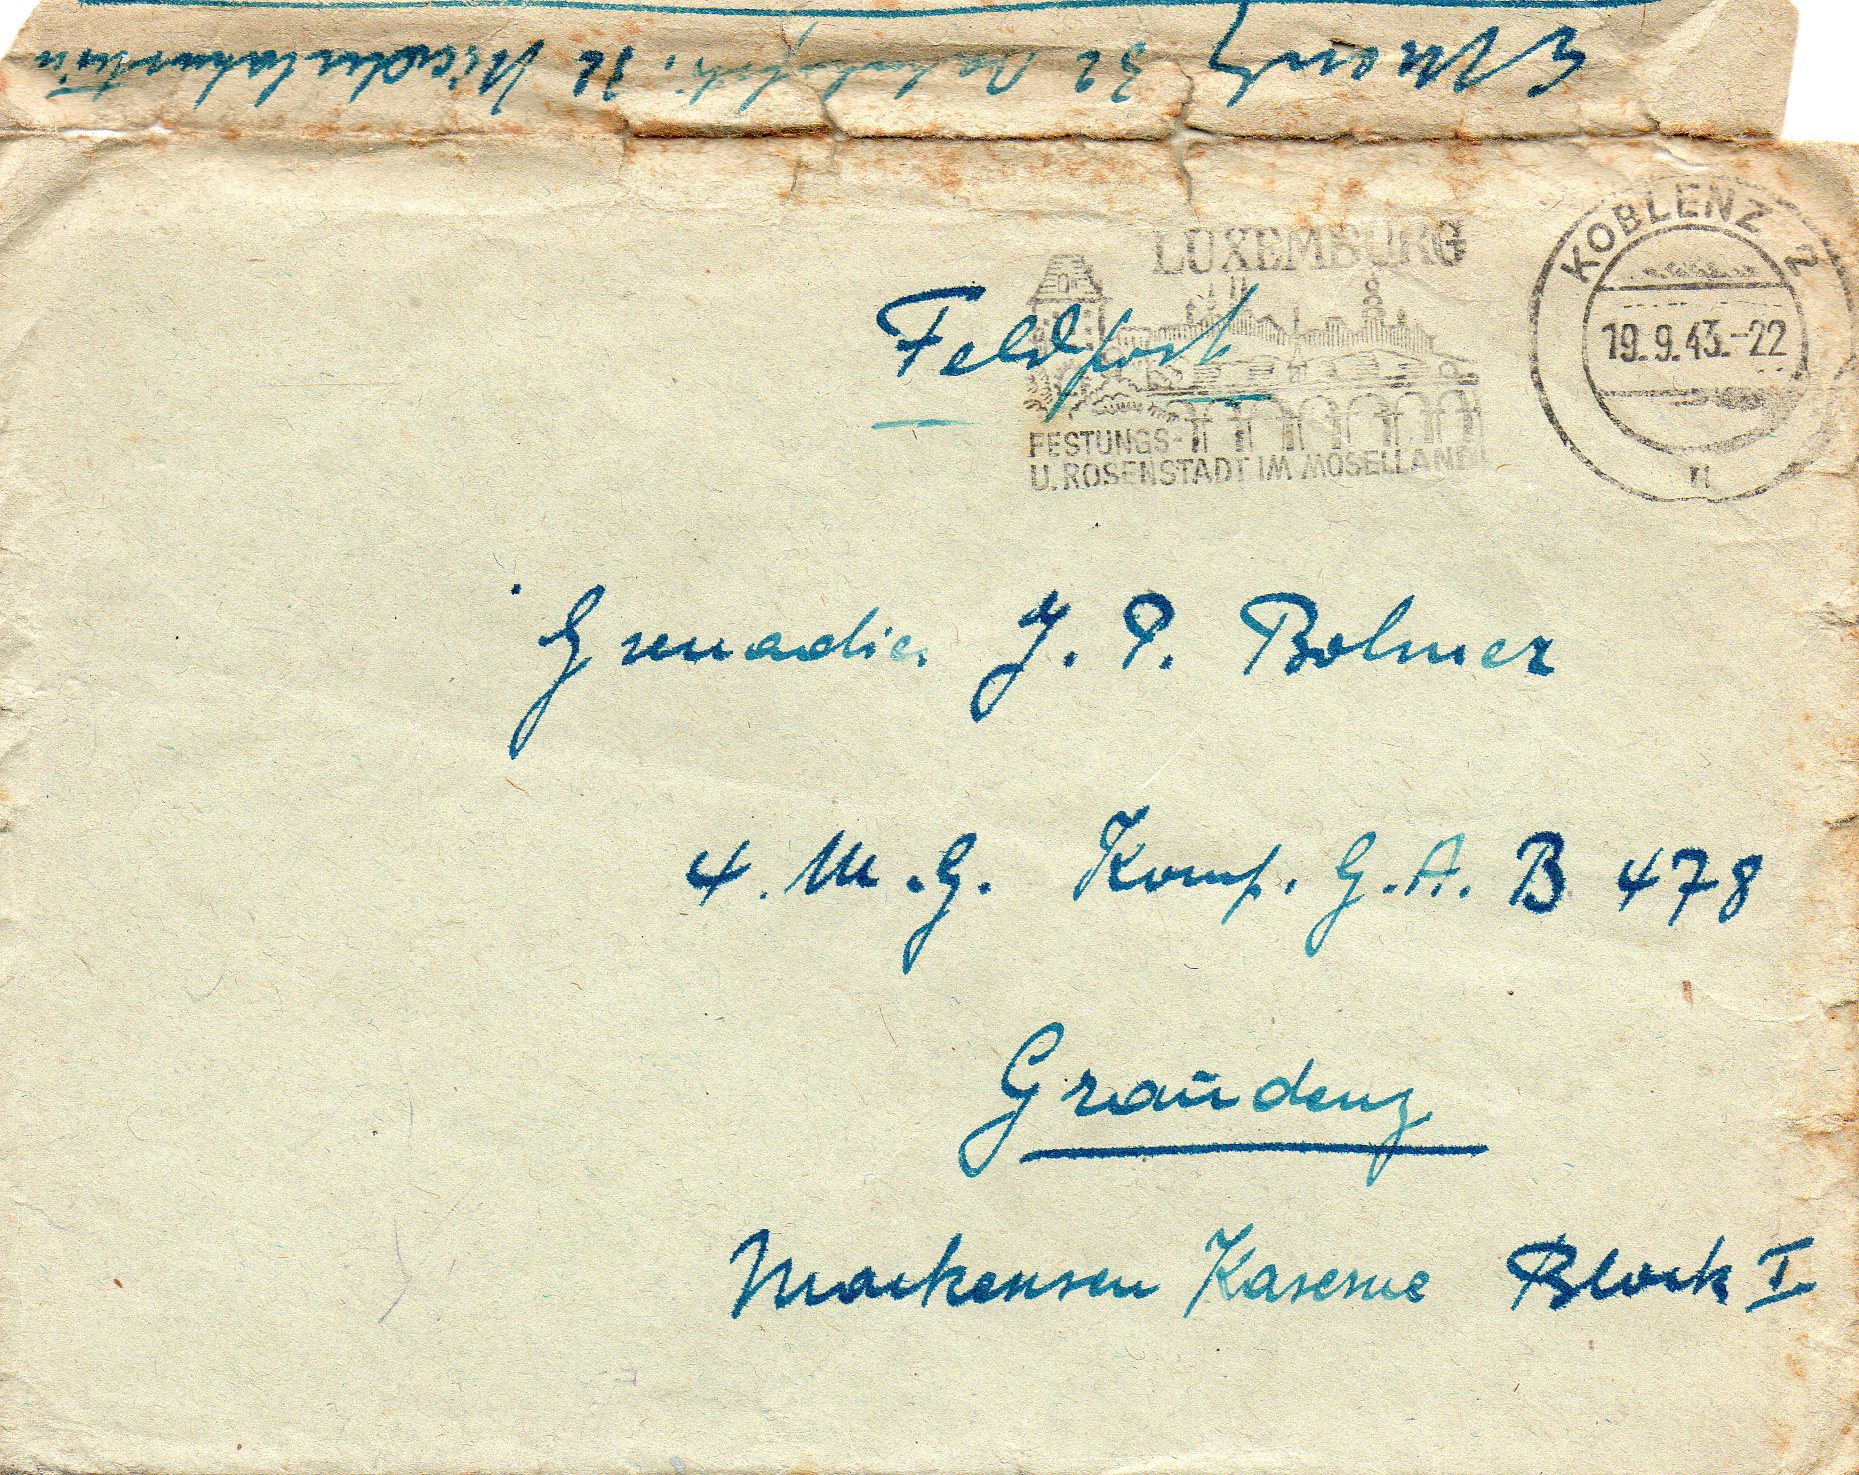 32 Bahnhofstr. 72 Niederlahnstein
LUXEMBURG
FESTUNGS-
U. ROSENSTADT IM MOSELLAND
KOBLENZ 2
19.9.43.-22
n
Feldpost
Grenadier J. P. Bolmer
4. M.G. Komp. G.A. B 478
Graudenz
Mackensen Kaserne Block I